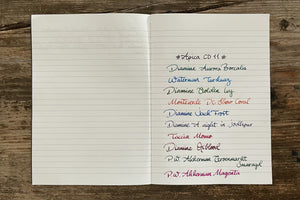 #Apica CD 11#
Diamine Aurora Borealis
Waterman Turquoise
Diamine Golden Ivy
Monteverde DC Show Coral
Diamine Jack Frost
Diamine A night in Jodhpur
Taccia Momo
Diamine Oxblood
P.W. Akkerman Groenmarkt
Smaragd
P.W. Akkerman Magenta